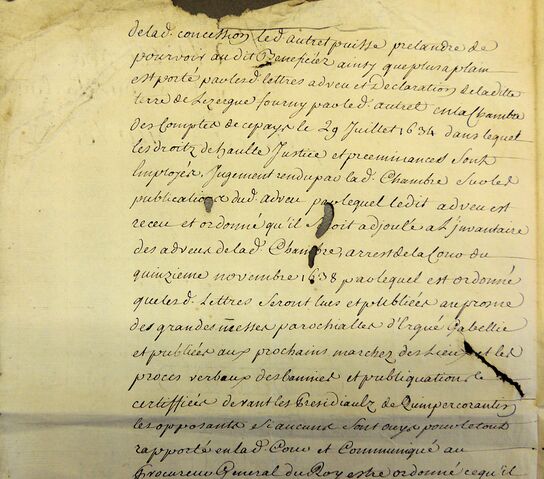 delad. concession led. autret puisse pretandre de
pourvoir audit Benefficer ainsy que plus a plain
est porté par lesd. lettres adveu et Declaration de laditte
terre de Lezergue fourny par led. autret en la Chambre
des Comptes de ce pays le 29 Juillet 1634 dans lequel
les droitz de haulte Justice et preeminances sont
Employés, Jugement rendu par lad. Chambre sur les
publications dud. adveu par lequel ledit adveu est
receu et ordonné qu'il soit adjouté a L'jnvantaire
des adveus de lad. Chambre, arrest de la Cour du
quinzieme novembre 1638 par lequel est ordonné
que lesd. Lettres seront lues et publiées au prosne
des grandes messes parochialles d'Ergué Gabellic
et publiées aux prochains marchez des Lieux et les
proces verbaux des bannies et publiquations
certiffiées devant les Presidiaulx de Quimpercorantin
les opposants si aucuns sont ouys pour le tout
rapporté en lad. Cour et Communiqué au
Procureur General du Roy estre ordonné ce qu'il